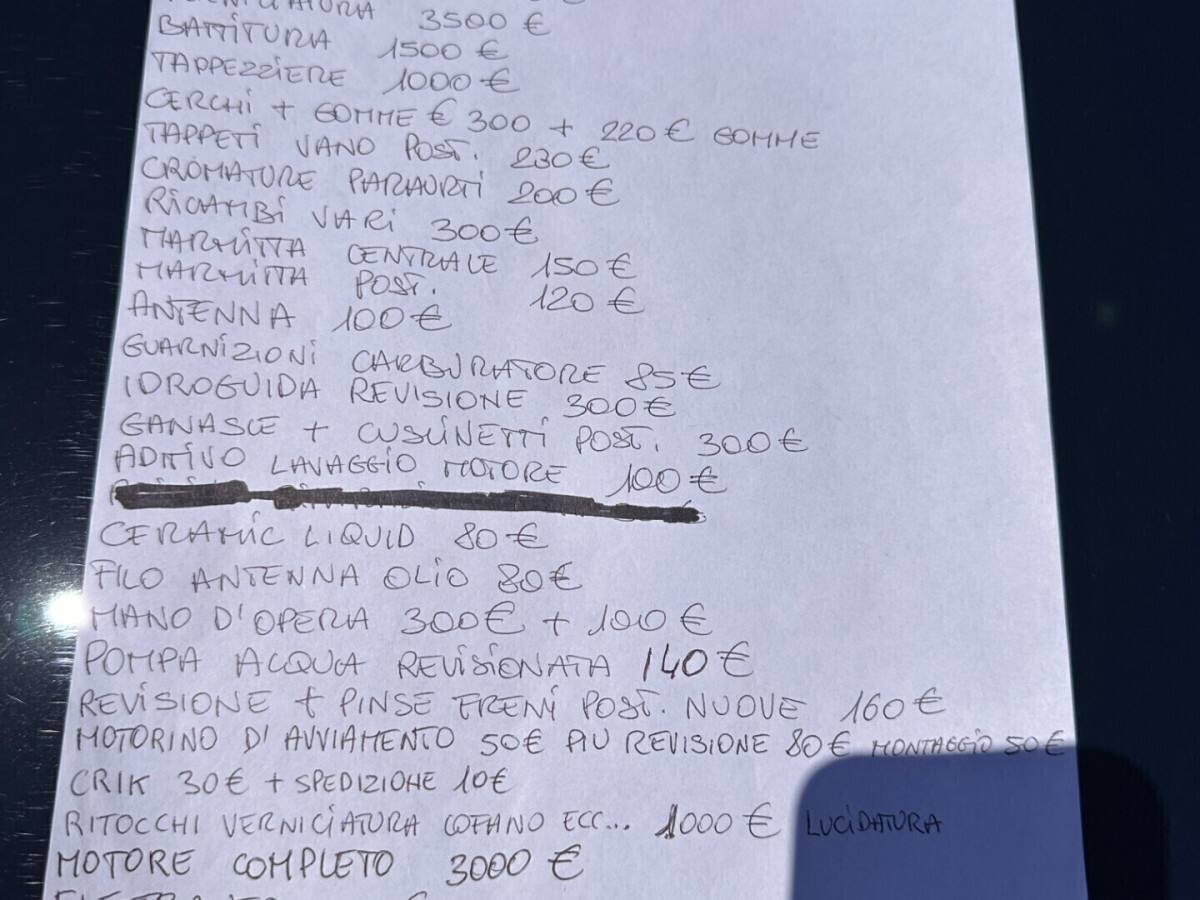 3500 €
BATTITURA 1500 €
TAPPEZZIERE 1000 €
CERCHI + GOMME € 300 + 220 € GOMME
TAPPETI VANO POST. 230 €
CROMATURE PARAURTI 200 €
RICAMBI VARI 300 €
MARMITTA CENTRALE 150 €
MARMITTA POST. 120 €
ANTENNA 100 €
GUARNIZIONI CARBURATORE 85 €
IDROGUIDA REVISIONE 300 €
GANASCE + CUSCINETTI POST. 300 €
ADITIVO LAVAGGIO MOTORE 100 €
CERAMIC LIQUID 80 €
FILO ANTENNA OLIO 80 €
MANO D'OPERA 300 € + 100 €
POMPA ACQUA REVISIONATA 140 €
REVISIONE + PINSE FRENI POST. NUOVE 160 €
MOTORINO D'AVVIAMENTO 50 € PIU REVISIONE 80 € MONTAGGIO 50 €
CRIK 30 € + SPEDIZIONE 10 €
RITOCCHI VERNICIATURA COFANO ECC... 1000 € LUCIDATURA
MOTORE COMPLETO 3000 €